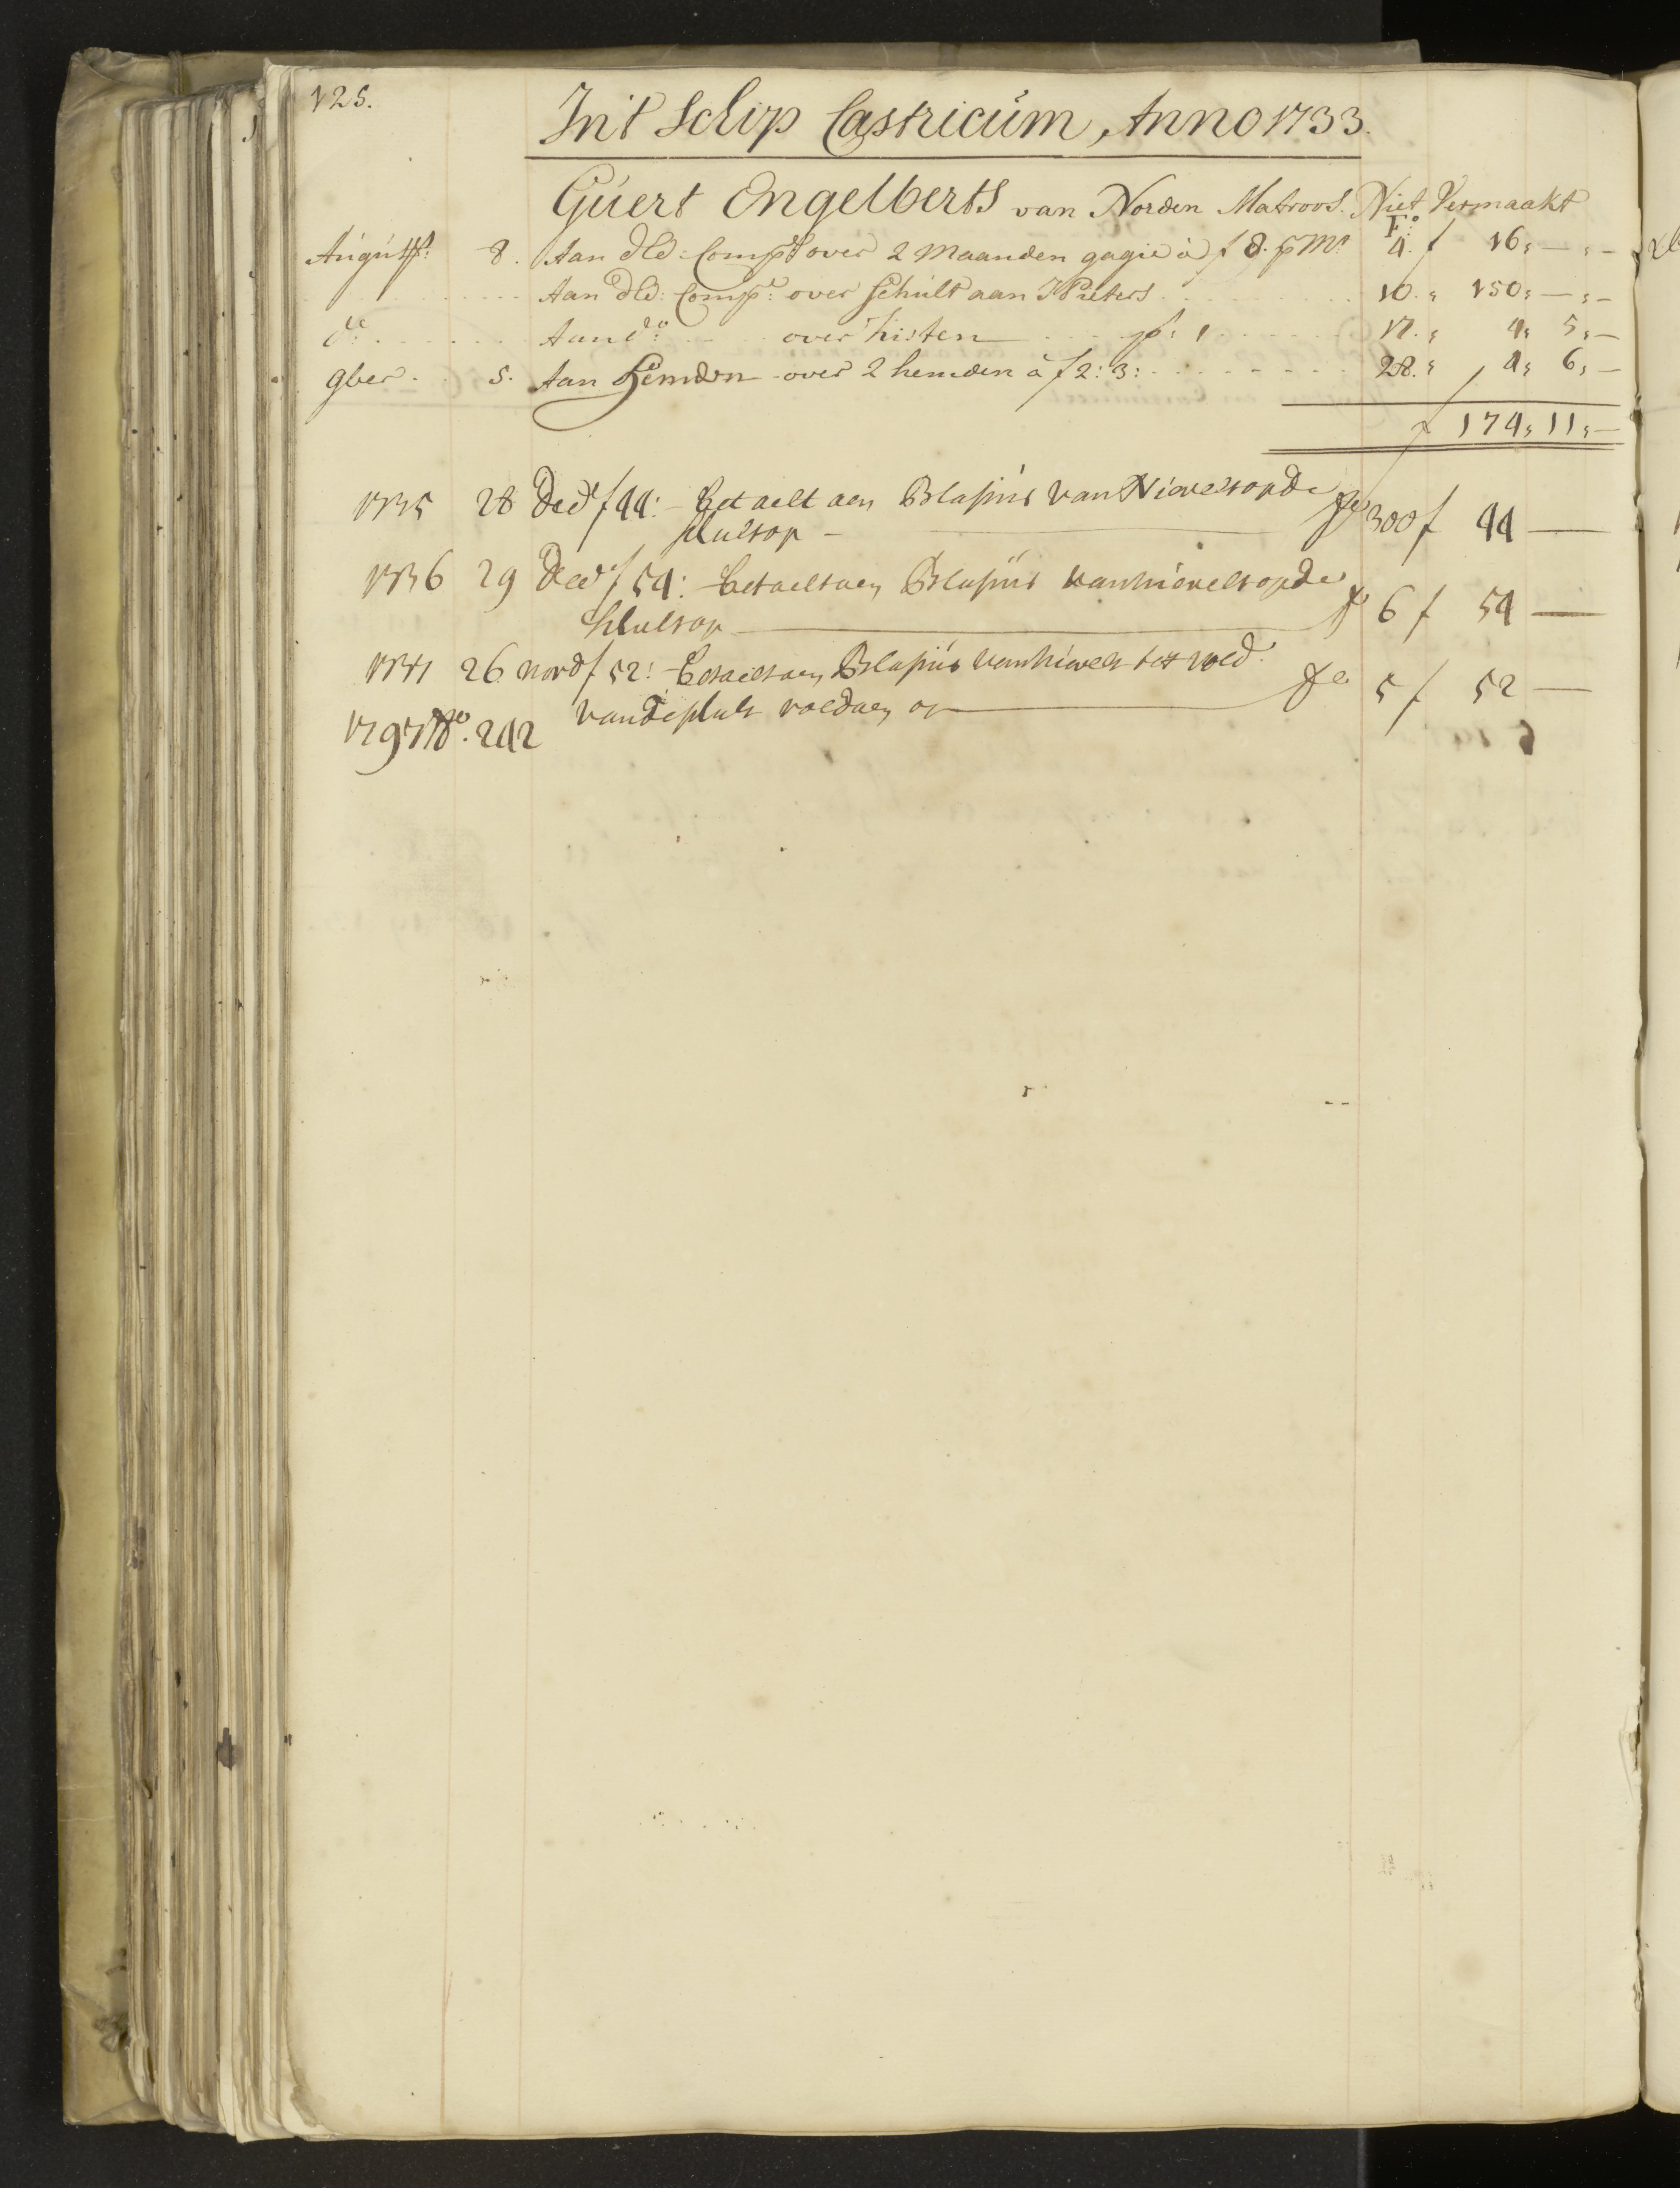 125.
In't Schip Castricúm, Anno 1733.
Gúert Engelberts van Norden Matroos. Niet Vermaakt
Fo:
Augústs: 8. Aan dEd: Compe over 2 Maanden gagie à f 8. p Mt 4. f 16,—,—
Aan dEd: Comp: over Schult aan I Pieters 10. „ 150,—,—
do: Aan do: over kisten ps: 1 17. „ 4, 5,—
9ber 5. Aan Hemden over 2 hemden à f 2:3: 28. „ 4, 6,—
f 174, 11,—
1735 28 Decr f 44: — betaelt aen Blasius van Nievelt op de fo 300 f 44 —
schult op —
1736 29 Decr f 54: — betaelt aen Blasius van nievelt op de fo 6 f 54 —
schult op
1737 26 novr f 52: — betaelt aen Blasius van nivelt tot vold. fo 5 f 52 —
van de schult voldaen op
No. 242